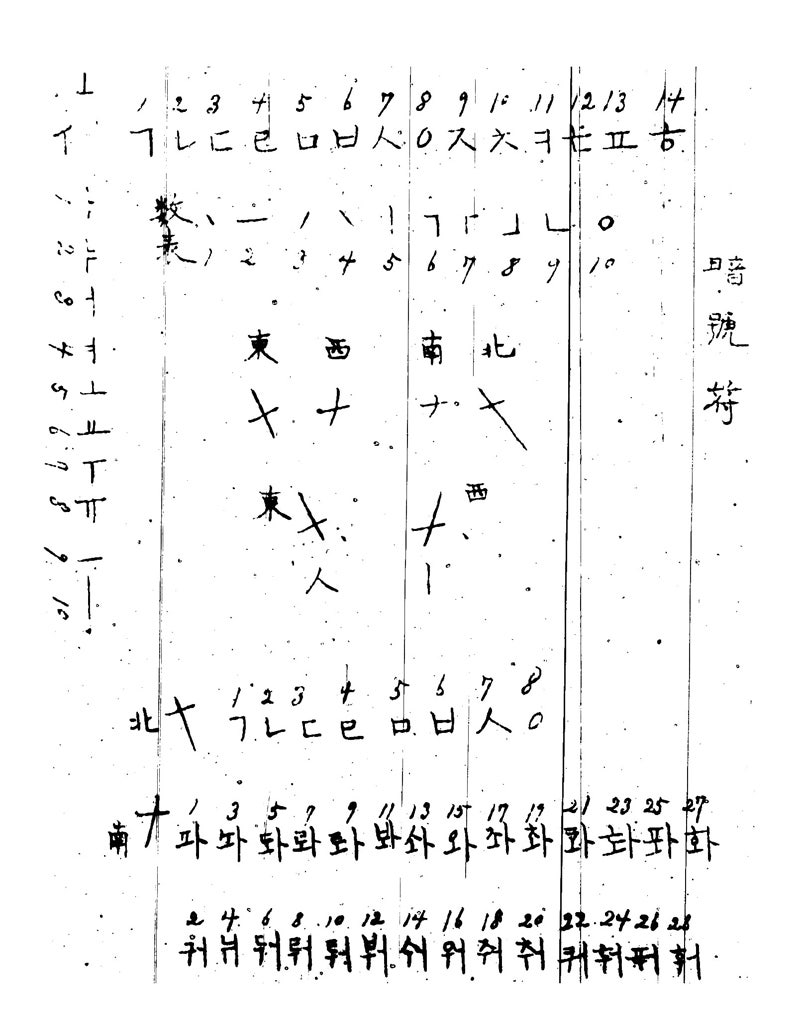 暗號符
1 2 3 4 5 6 7 8 9 10 11 12 13 14
ㄱ ㄴ ㄷ ㄹ ㅁ ㅂ ㅅ ㅇ ㅈ ㅊ ㅋ ㅌ ㅍ ㅎ
1 2 3 4 5 6 7 8 9 10
ㅏ ㅑ ㅓ ㅕ ㅗ ㅛ ㅜ ㅠ ㅡ ㅣ
數 丶 一 / \ | ㄱ 「 」 ㄴ ㅇ
表 1 2 3 4 5 6 7 8 9 10
東 西 南 北
東 西
人 |
1 2 3 4 5 6 7 8
北 ㄱ ㄴ ㄷ ㄹ ㅁ ㅂ ㅅ ㅇ
1 3 5 7 9 11 13 15 17 19 21 23 25 27
南 과 놔 돠 롸 뫄 봐 솨 와 좌 촤 콰 톼 퐈 화
2 4 6 8 10 12 14 16 18 20 22 24 26 28
궈 눠 둬 뤄 뭐 붜 숴 워 줘 춰 쿼 퉈 풔 훠